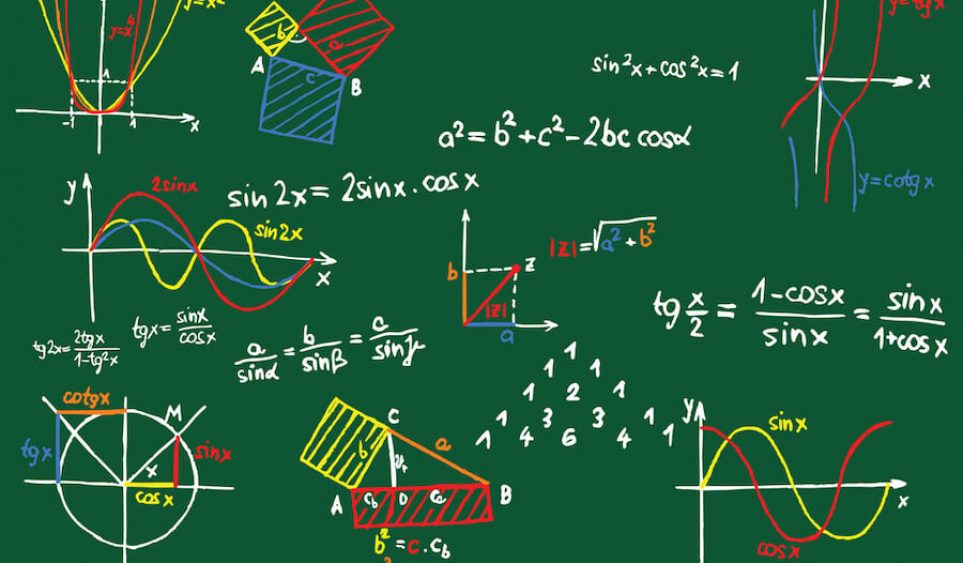 y=x²
y=x⁴
1
-1
1
x
b
a
c
A
B
sin²x+cos²x=1
y=tgx
x
y=cotgx
a²=b²+c²-2bc cosα
sin2x=2sinx.cosx
y
2sinx
sin2x
x
|z|=√a²+b²
b
z
|z|
a
tg x/2 = 1-cosx/sinx = sinx/1+cosx
tg2x=2tgx/1-tg²x
tgx=sinx/cosx
a/sinα=b/sinβ=c/sinγ
1
1 1
1 2 1
1 3 3 1
1 4 6 4 1
cotgx
M
tgx
x
sinx
cosx
C
b
a
A
c_b
D
c_a
B
b²=c.c_b
y
sinx
x
cosx